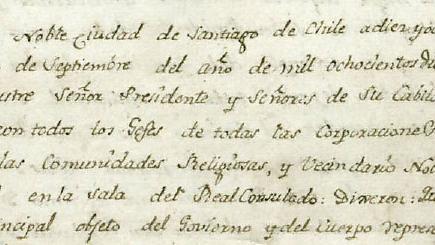 Noble Ciudad de Santiago de Chile adiez yoc
de Septiembre del año de mil ochocientos di
ustre Señor Presidente y Señores de Su Cabil
con todos los Gefes de todas las Corporacione
las Comunidades Religiosas, y Vecindario No
en la sala del Real Consulado: Dixeron: 
incipal objeto del Govierno y del Cuerpo repre